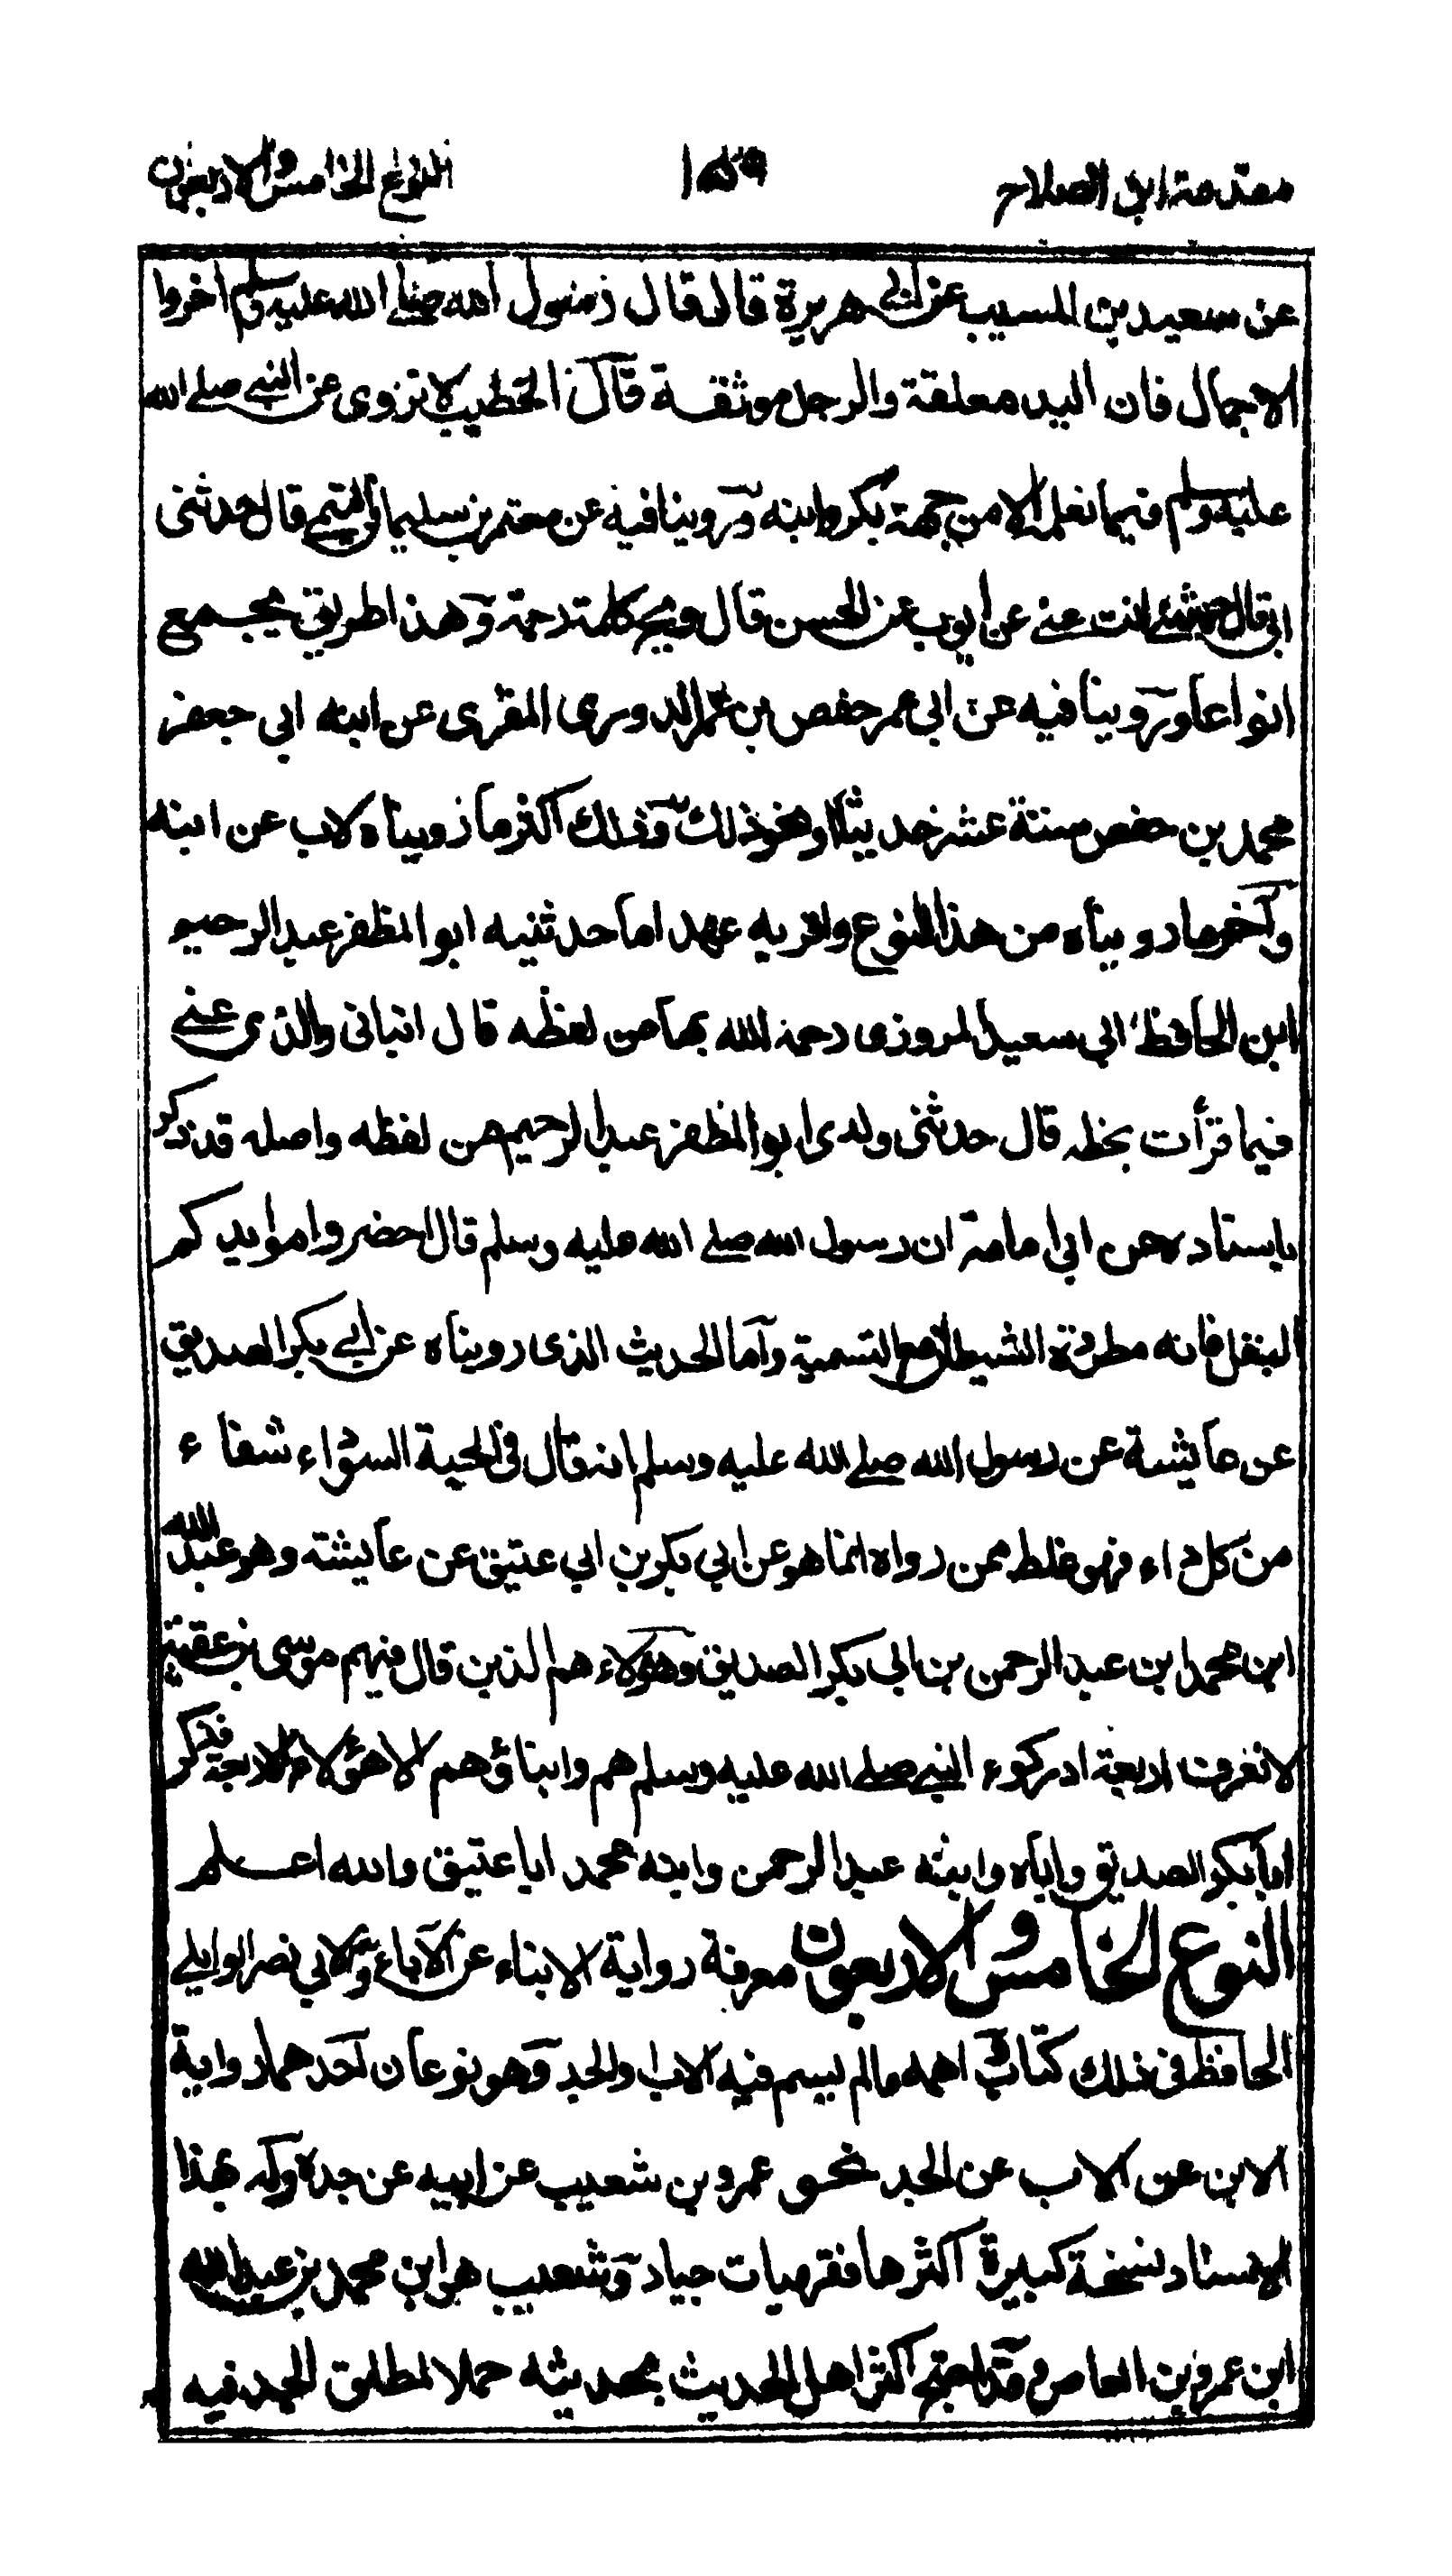 مقدمة ابن الصلاح ١٥٩ النوع الخامس والاربعون
عن سعيد بن المسيب عن ابى هريرة قال قال رسول الله صلى الله عليه وسلم اخروا
الاجمال فان اليد معلقة والرجل موثقة قال الخطيب لا نروى عن النبي صلى الله
عليه وسلم فيما نعلم الا من جهة بكر وابنه وروينا فيه عن معتمر بن سليمان التيمي قال حدثنى
ابى قال حدثتني انت عني عن ايوب عن الحسن قال ويح كلمة رحمة وهذا طريق يجمع
انواعا وروينا فيه عن ابى عمر حفص بن عمر الدورى المقرى عن ابنه ابى جعفر
محمد بن حفص ستة عشر حديثا او نحو ذلك وذلك اكثر ما رويناه لاب عن ابنه
وآخر ما رويناه من هذا النوع واقربه عهدا ما حدثنيه ابو المظفر عبد الرحيم
ابن الحافظ ابي سعيد المروزى رحمه الله بها من لفظه قال انبانى والدى عني
فيما قرأت بخطه قال حدثنى ولدى ابو المظفر عبد الرحيم من لفظه واصله قد ذكر
باسناده عن ابى امامة ان رسول الله صلى الله عليه وسلم قال احضروا موايدكم
البقل فانه مطردة للشيطان مع التسمية وآما الحديث الذى رويناه عن ابي بكر الصديق
عن عايشة عن رسول الله صلى الله عليه وسلم انه قال فى الحبة السوداء شفاء
من كل داء فهو غلط ممن رواه انما هو عن ابي بكر بن ابي عتيق عن عايشة وهو عبد الله
ابن محمد ابن عبد الرحمن بن ابي بكر الصديق وهؤلاء هم الذين قال فيهم موسى بن عقبة
لا نعرف اربعة ادركوء النبي صلى الله عليه وسلم هم وابناؤهم الا هؤلاء الاربعة فذكر
ابا بكر الصديق واباه وابنه عبد الرحمن وابنه محمد ابا عتيق والله اعلم
النوع الخامس والاربعون معرفة رواية الابناء عن الآباء ولابي نصر الوايلي
الحافظ فى ذلك كتاب اهمه مالم يسم فيه الاب والجد وهو نوعان آحدهما رواية
الابن عن الاب عن الجد نحو عمرو بن شعيب عن ابيه عن جده وله بهذا
الاسناد نسخة كبيرة اكثرها فقهيات جياد وشعيب هو ابن محمد بن عبد الله
ابن عمرو بن العاص وقد احتج اكثر اهل الحديث بحديثه حملا لمطلق الجد فيه